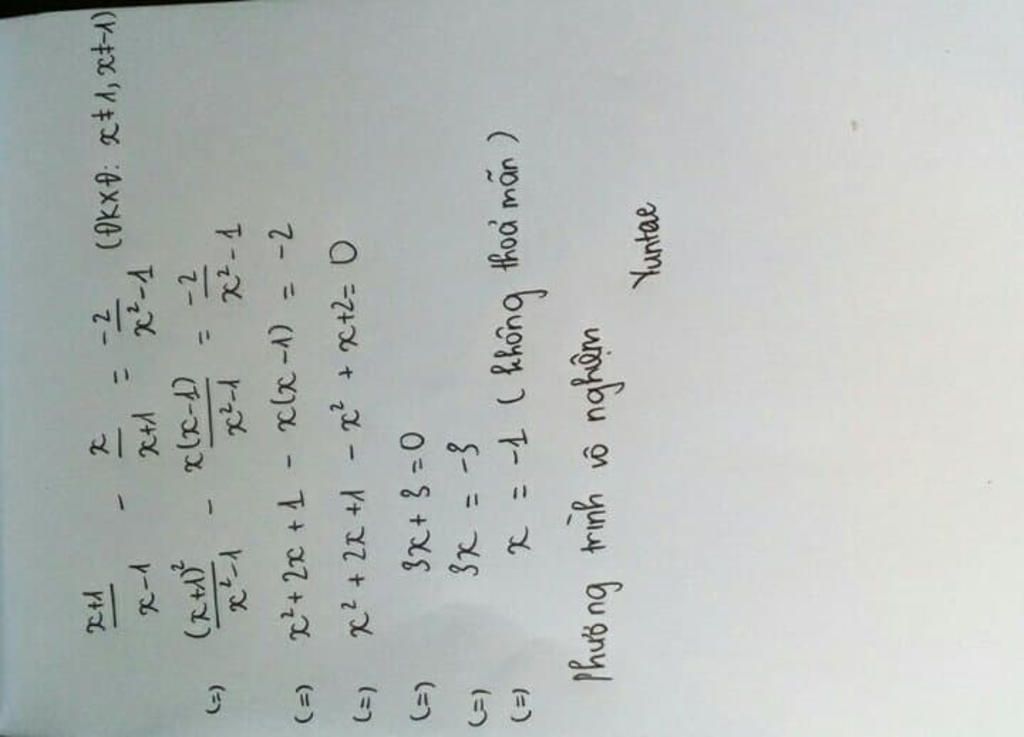 x+1/x-1 - x/x+1 = -2/x²-1 (ĐKXĐ: x≠1, x≠-1)
(=) (x+1)²/x²-1 - x(x-1)/x²-1 = -2/x²-1
(=) x²+2x+1 - x(x-1) = -2
(=) x²+2x+1 - x² + x+2=0
(=) 3x+3=0
(=) 3x = -3
(=) x = -1 (không thoả mãn)
Phương trình vô nghiệm
Yuntae